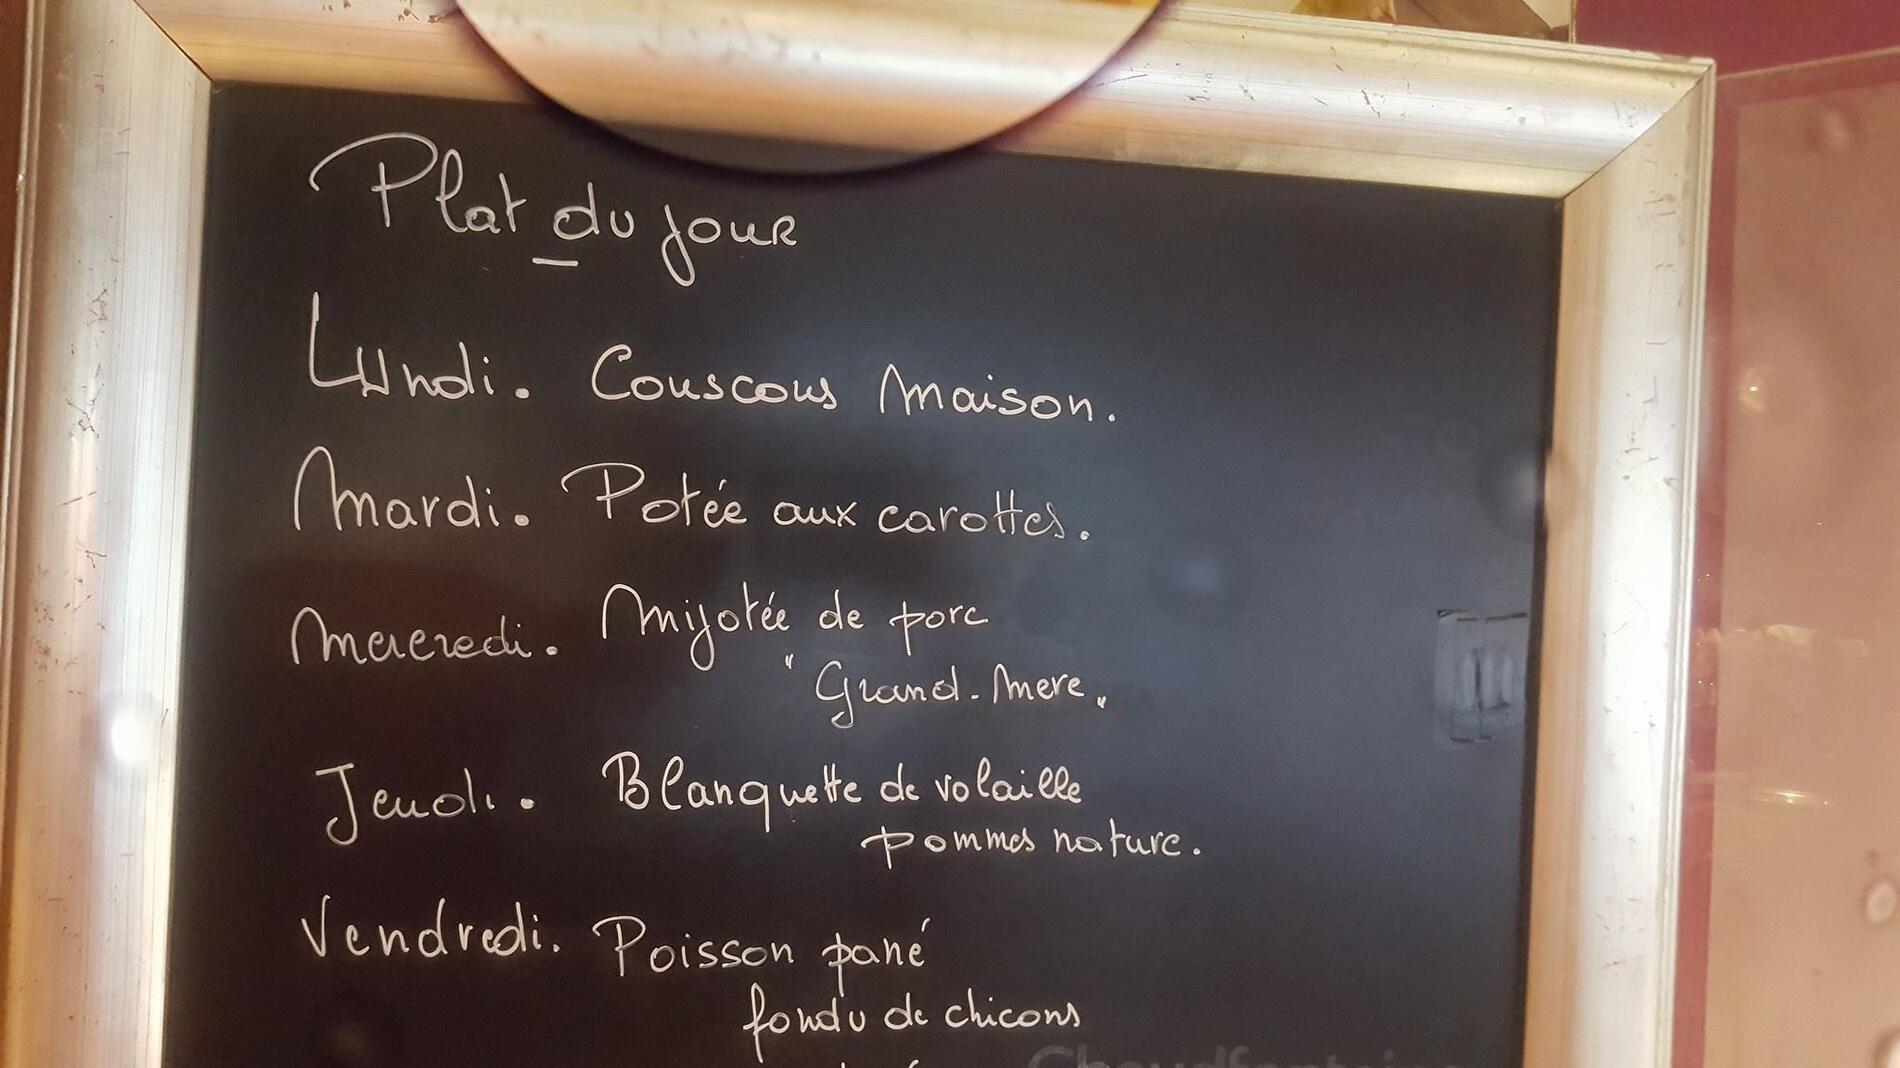 Plat du jour
Lundi. Couscous Maison.
Mardi. Potée aux carottes.
Mercredi. Mijotée de porc
"Grand-Mere"
Jeudi. Blanquette de volaille
pommes nature.
Vendredi. Poisson pané
fondu de chicons